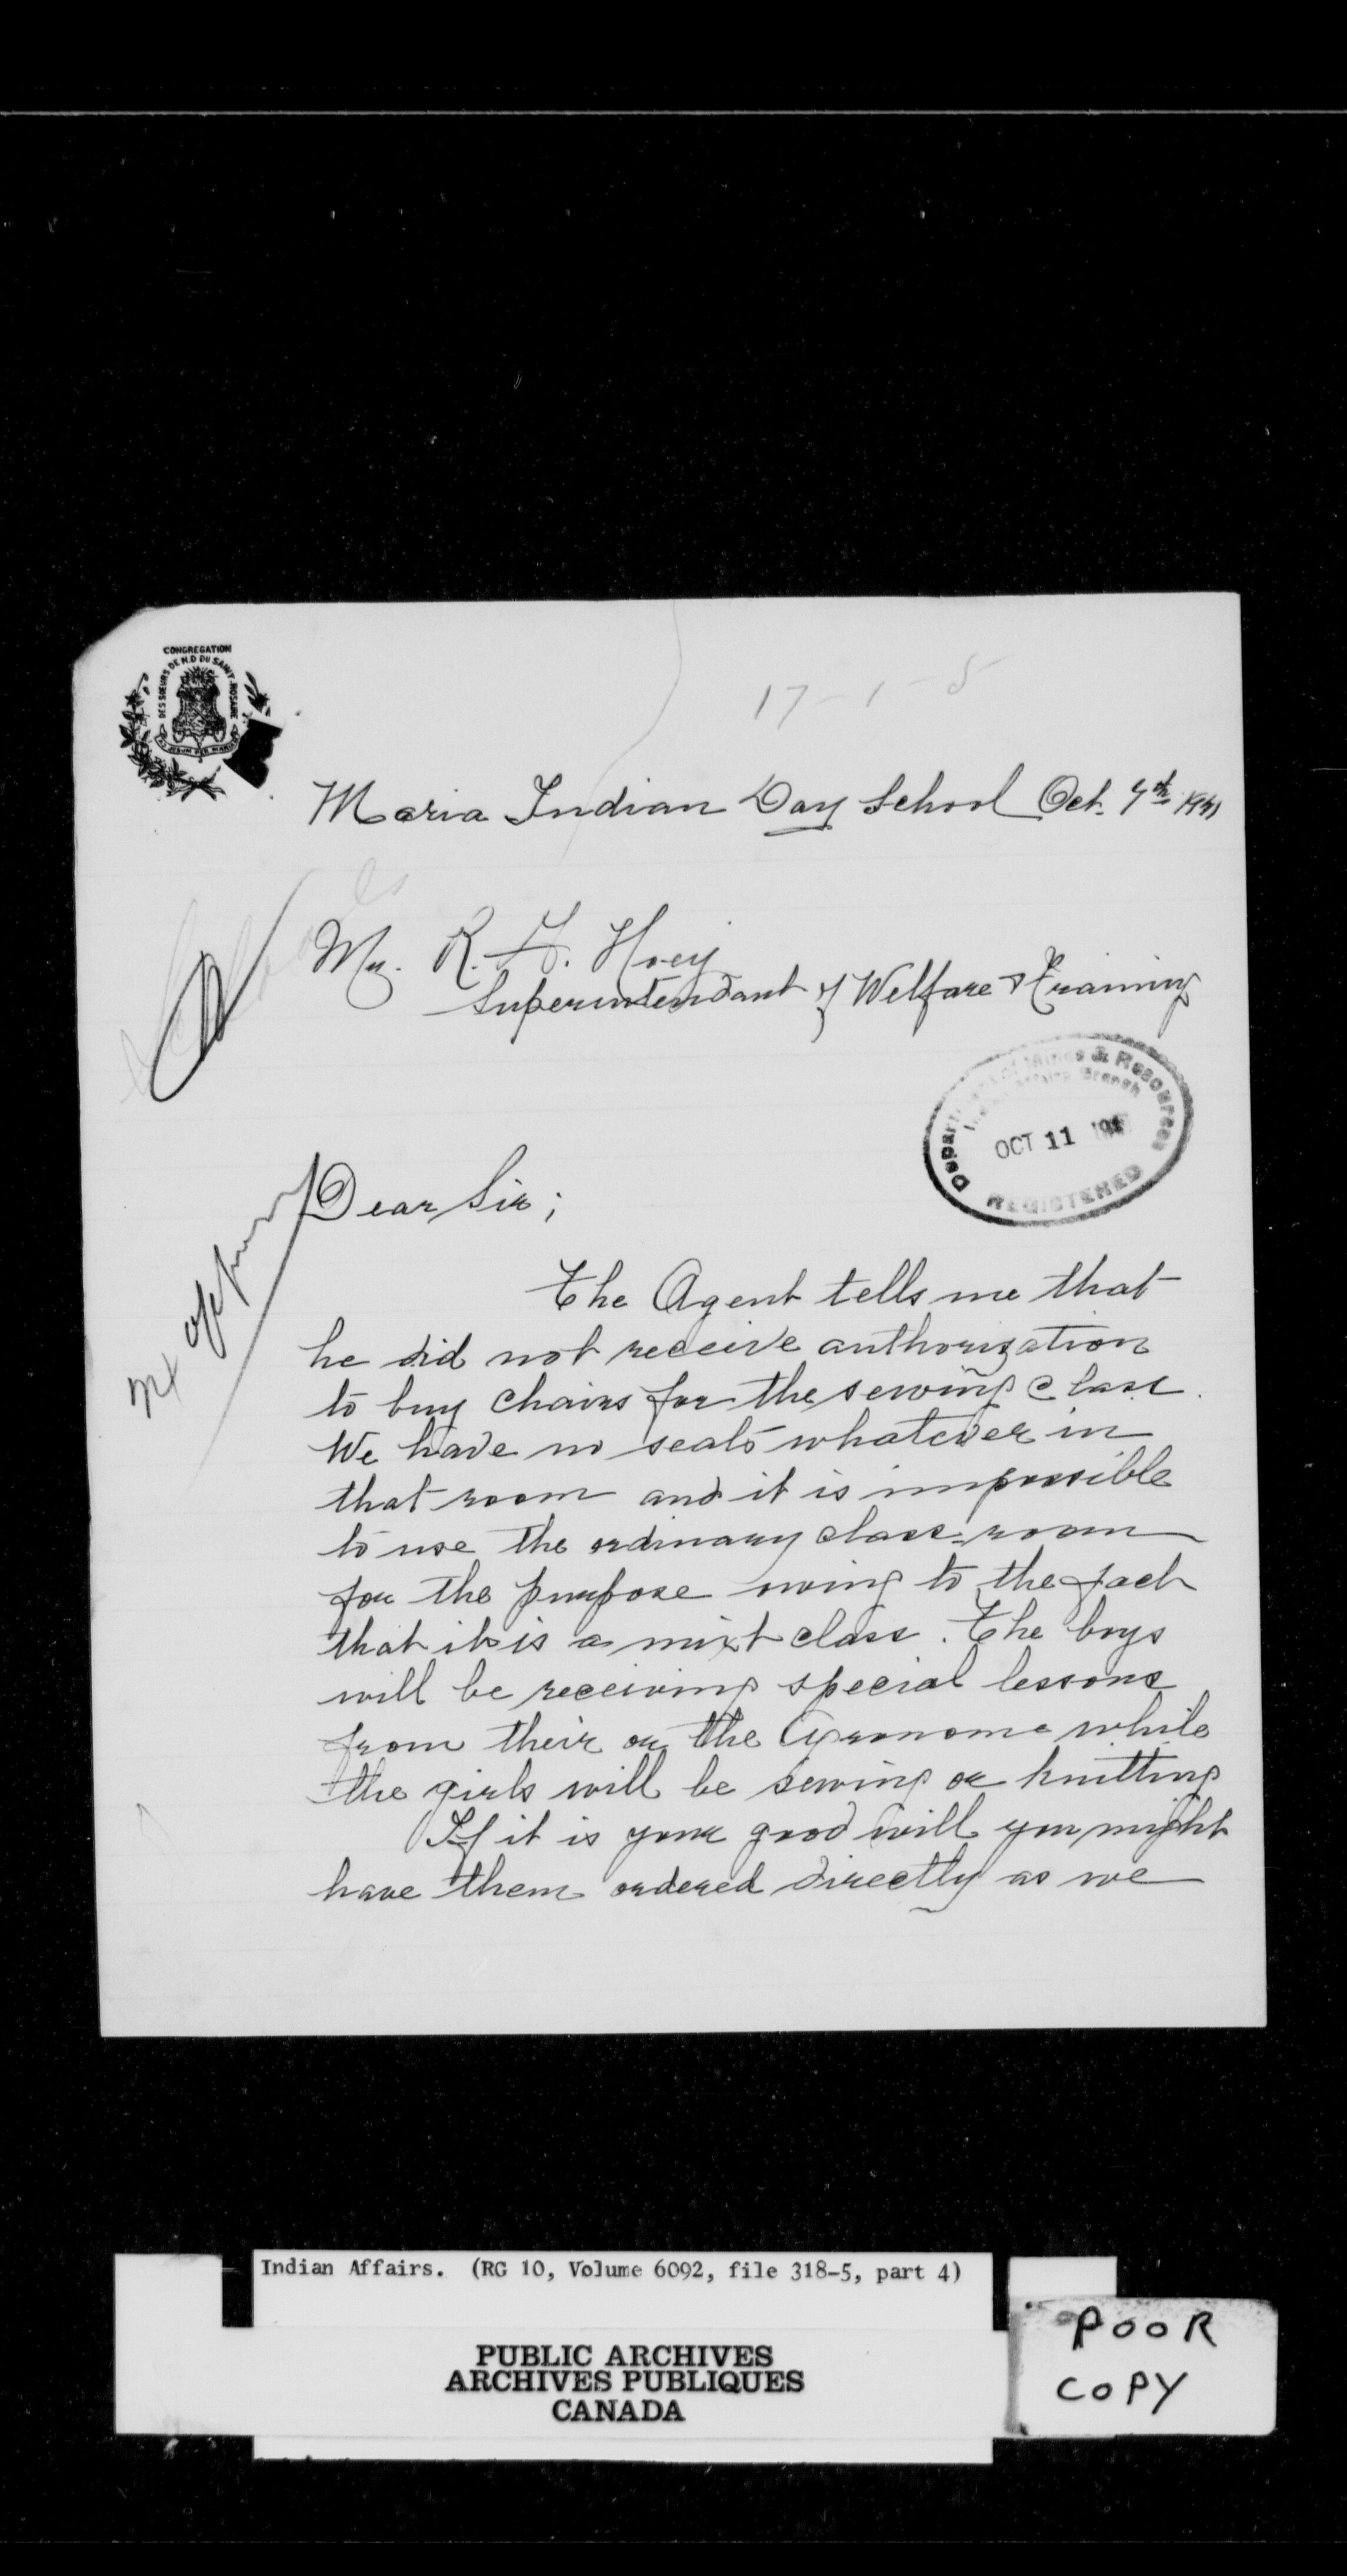 CONGREGATION
DES SOEURS DE N.D DU SAINT-ROSAIRE
17-1-5
Maria Indian Day School Oct. 9th 1941
Mr. R. A. Hoey
Superintendant of Welfare & Training
Department of Mines & Resources
Indian Affairs Branch
OCT 11
REGISTERED
Dear Sir;
The Agent tells me that
he did not receive authorization
to buy chairs for the sewing class.
We have no seats whatever in
that room and it is impossible
to use the ordinary class-room
for the purpose owing to the fact
that it is a mixt class. The boys
will be receiving special lessons
from their or the Agronome while
the girls will be sewing or knitting
If it is your good will you might
have them ordered directly as we
Indian Affairs. (RG 10, Volume 6092, file 318-5, part 4)
PUBLIC ARCHIVES
ARCHIVES PUBLIQUES
CANADA
POOR
COPY